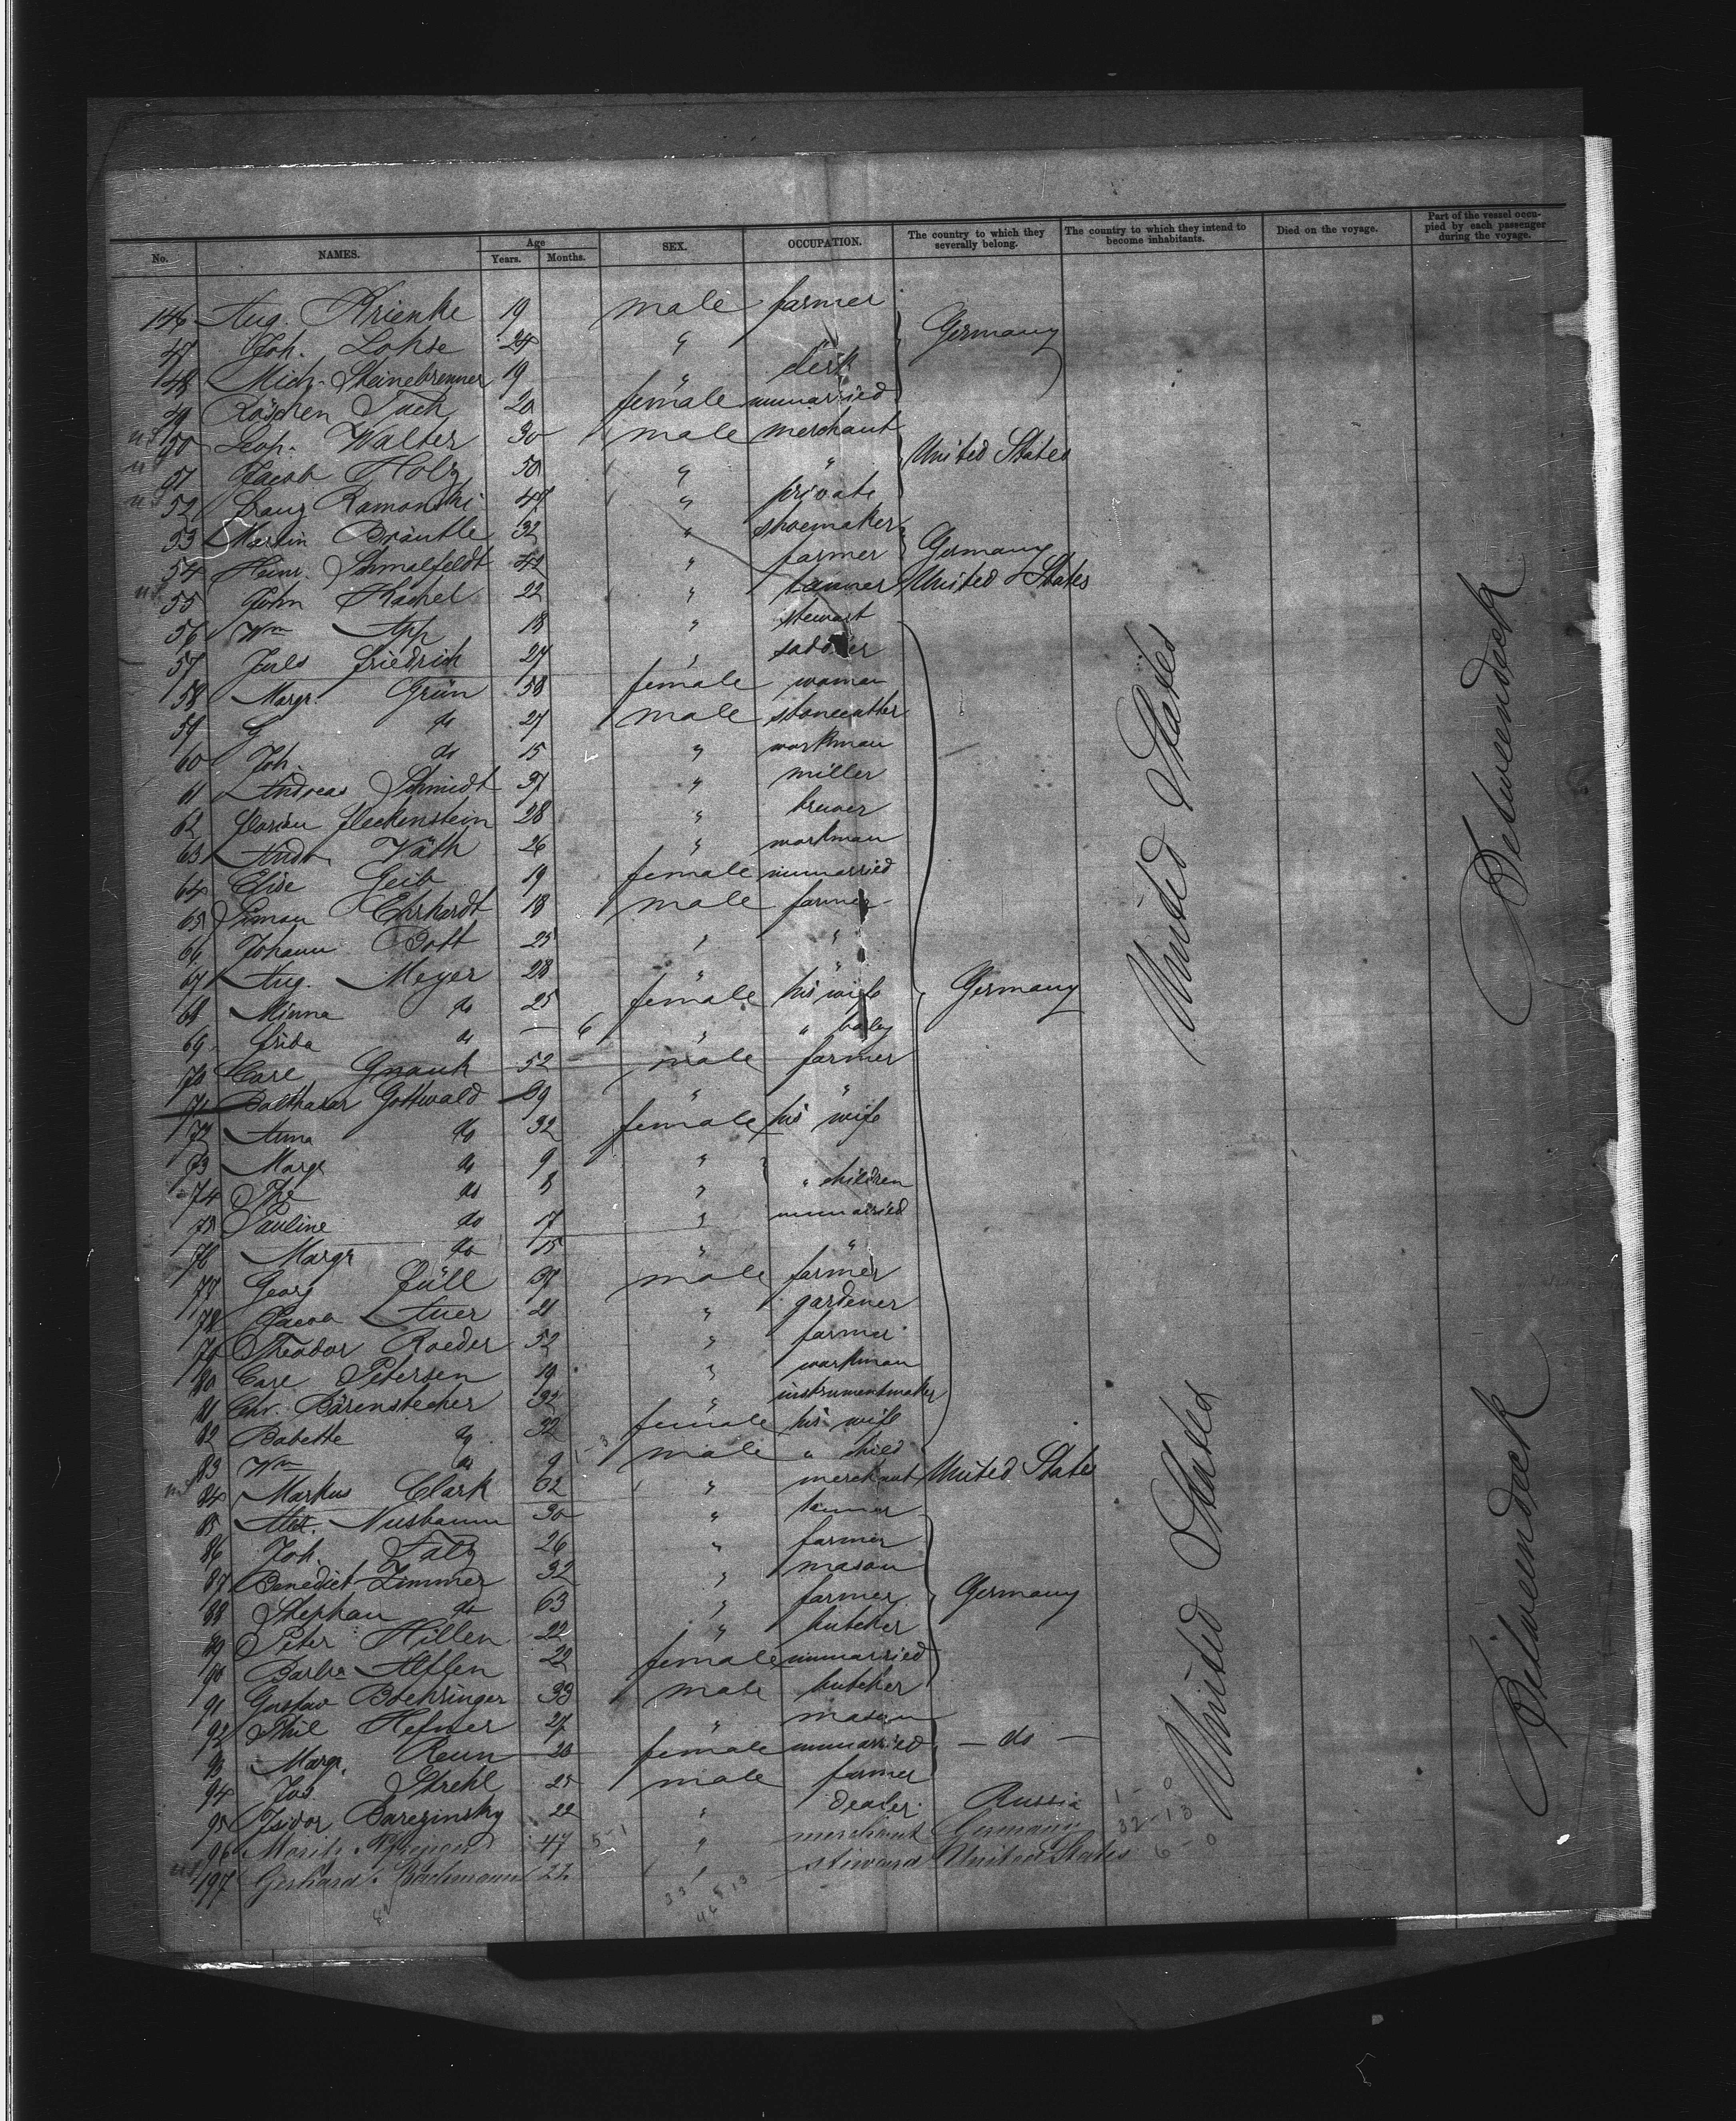 No. NAMES. Age Years. Months. SEX. OCCUPATION. The country to which they severally belong. The country to which they intend to become inhabitants. Died on the voyage. Part of the vessel occupied by each passenger during the voyage.
146 Aug. Krienke 19 male farmer
47 Joh. Lohse 24 " " Germany
48 Mich. Steinebrenner 19 " clerk
49 Röschen Tach 20 female unmarried
50 Leop. Walter 30 male merchant
51 Jacob Holz 50 " " United States
52 Franz Ramonski 47 " private
53 Martin Bräutle 32 " shoemaker
54 Heinr. Schmalfeldt 42 " farmer Germany
55 John Kachel 22 " tanner United States
56 Wm App 18 " stewart
57 Juls Friedrich 27 "
58 Margr. Grün 58 female woman
59 G do 27 male stonecutter
60 Joh. do 15 " workman
61 Andreas Schmidt 37 " miller
62 Florian Fleckenstein 28 " bruver
63 Andr Väth 26 " workman
64 Elise Geib 19 female unmarried
65 Simon Ehrhardt 18 male farmer
66 Johann Bott 25 " "
67 Aug. Meyer 28 " "
68 Minna do 25 female his wife Germany
69 Frida do — 6 " " baby
70 Carl Gnauk 52 male farmer
71 Balthasar Gottwald 39 " "
72 Anna do 32 female his wife
73 Margr do 9 "
74 The do 8 " " children
75 Pauline do 17 " unmarried
76 Margr do 15 " "
77 Georg Füll 37 male farmer
78 Jacob Auer 21 " gardener
79 Theodor Roeder 52 " farmer
80 Carl Petersen 19 " workman
81 Chr. Bärenstecher 32 " instrumentmaker
82 Babette do 32 female his wife
83 Wm do 9 male " child
84 Markus Clark 62 " merchant United States
85 Alex. Nusbaum 30 "
86 Joh. Zatz 26 " farmer
87 Benedict Zimmer 32 " mason
88 Stephan do 63 " farmer Germany
89 Peter Hillen 22 " butcher
90 Barbra 22 female unmarried
91 Gustav Boehringer 33 male butcher
92 Phil Hefner 27 " mason
93 Margr. Renn 20 female unmarried — do —
94 Jos Strehl 25 male farmer
95 Isidor Barezinsky 22 " dealer Russia
96 Moritz 47 " merchant Germany
197 Gerhard Bachmann 22 " steward United States
United States
Betweendeck
United States
Betweendeck